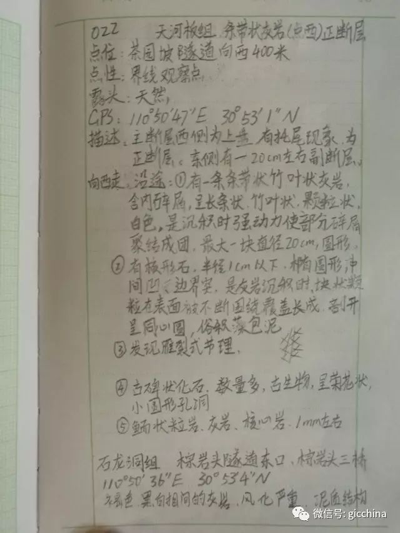 022 天河板组 条带状灰岩(点西)正断层
点位:茶园坡隧道向西400米
点性:界线观察点
露头:天然
GPS:110°50'47"E 30°53'1"N
描述:主断层西侧为上盘,有拖尾现象,为
正断层。东侧有一20cm左右副断层。
向西走,沿途:①有一条条带状竹叶状灰岩,
含内碎屑,呈长条状、竹叶状、颗粒状,
白色,是沉积时强动力使部分碎屑
聚结成团,最大一块直径20cm,圆形。
②有 形石,半径1cm以下,椭圆形,中
间凹 边 ,是灰岩沉积时,块状颗
粒在表面被不断围绕覆盖长成,剖开
呈同心圆,俗称藻包泥
③发现雁裂式节理。
④古碎状化石,数量多,古生物,呈菊花状,
小圆形孔洞
⑤鲕状粒岩、灰岩,核心岩,1mm左右
石龙洞组 棕岩头隧道东口,棕岩头三桥
110°50'36"E 30°53'4"N
褐色,黑白相间的灰岩,风化严重,泥质结构
微信号:gicchina